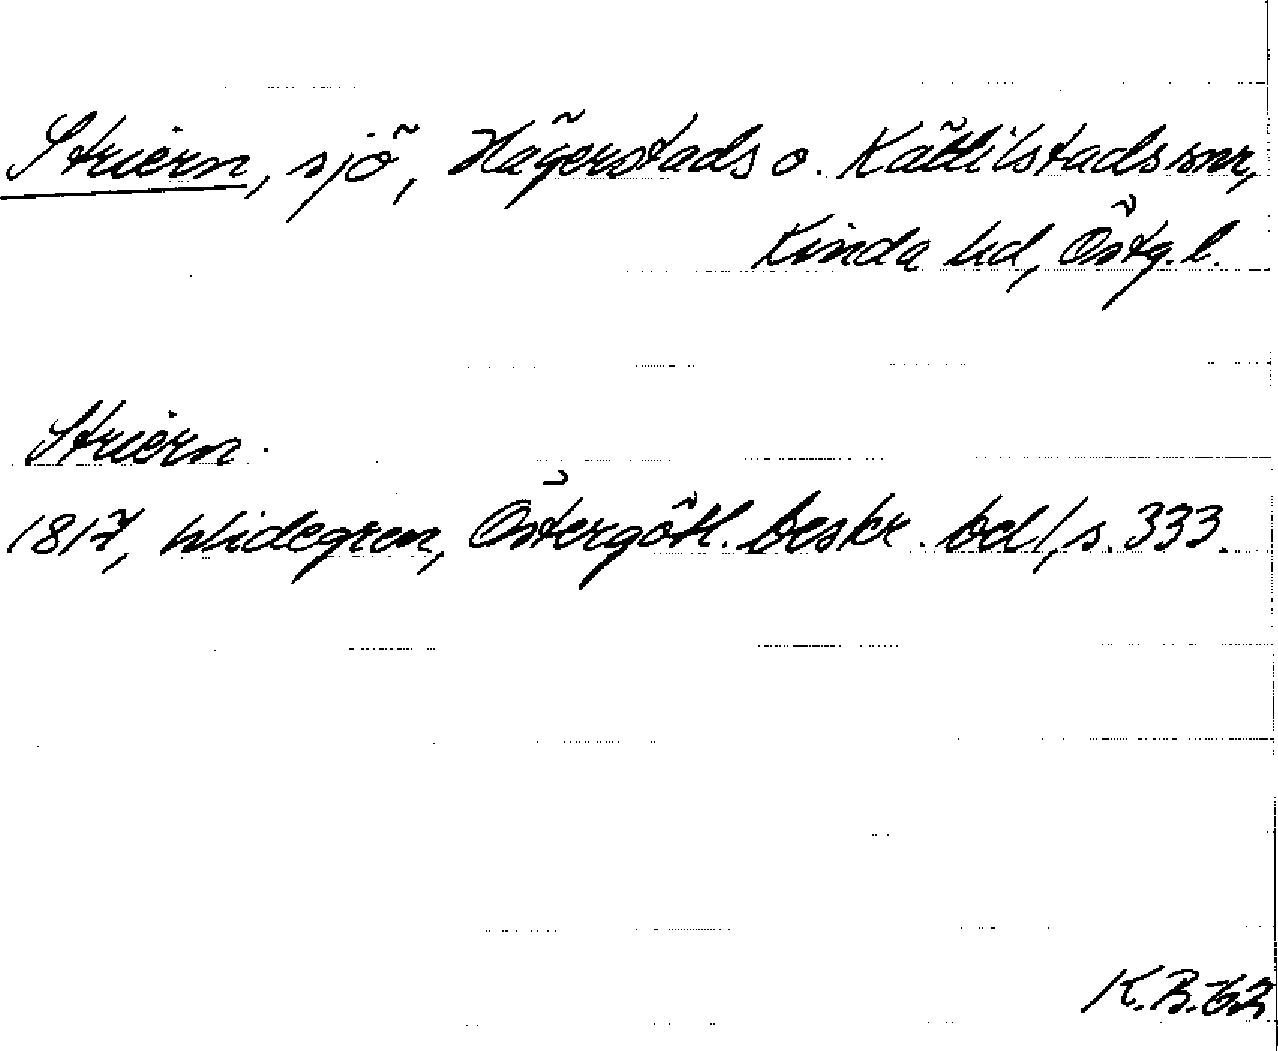 Striern, sjö, Hägerstads o. Kättilstads snr,
Kinda hd, Östg. l.
Striern.
1817, Widegren, Östergötl. beskr. bd 1, s. 333.
K.B. 62